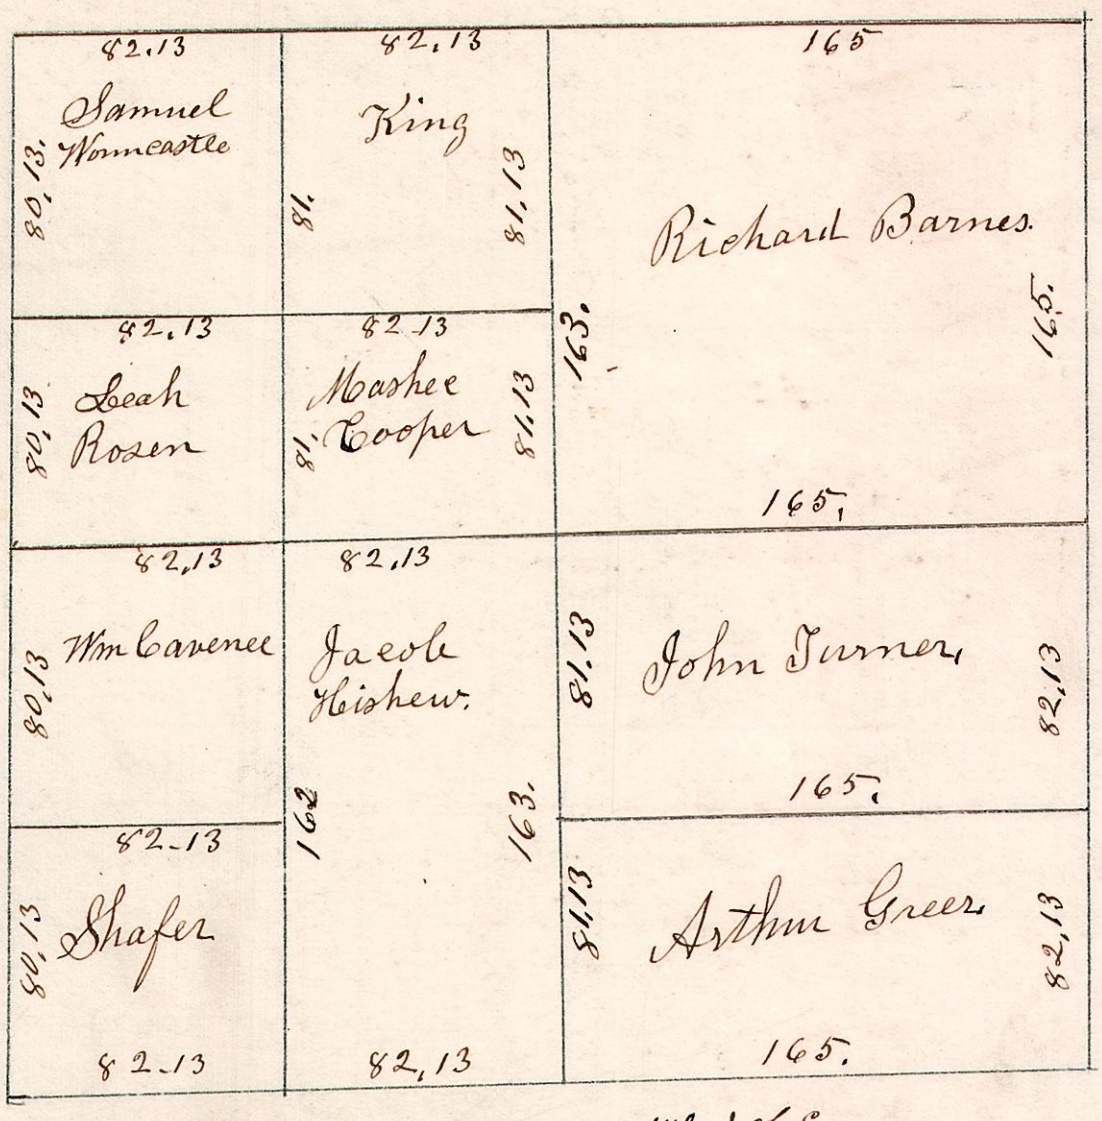 82.13
Samuel
Worncastle
80,13.
82,13
King
81.
81,13
165
Richard Barnes.
163.
165.
165.
82.13
Leah
Rosen
80,13
82-13
Mashee
Cooper
81.
81,13
82,13
Wm Cavenee
80,13
82,13
Jacob
Hishew.
162
163.
82,13
81,13
John Turner,
82,13
165.
82-13
Shafer
80,13
82-13
81,13
Arthur Greer
82,13
165.